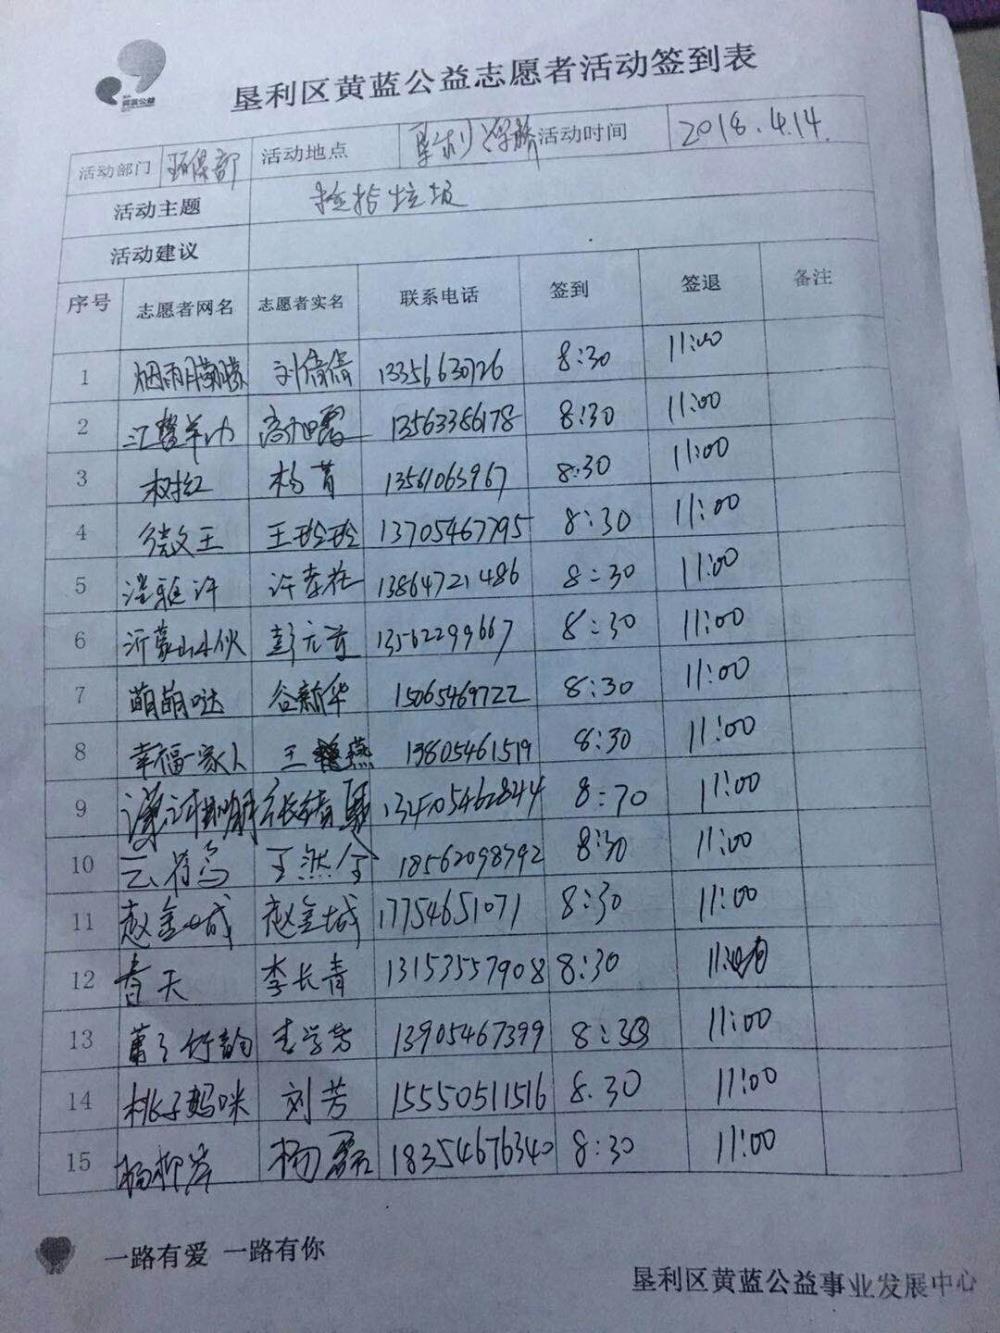 黄蓝公益
垦利区黄蓝公益志愿者活动签到表
活动部门 环保部 活动地点 垦利 活动时间 2018.4.14.
活动主题 捡拾垃圾
活动建议
序号 志愿者网名 志愿者实名 联系电话 签到 签退 备注
1 烟雨朦胧 刘倩倩 13356630726 8:30 11:00
2 高加露 13563386178 8:30 11:00
3 杨菁 13561065967 8:30 11:00
4 德文王 王玲玲 13705467795 8:30 11:00
5 许 13864721486 8:30 11:00
6 沂蒙山小伙 彭元首 13562299667 8:30 11:00
7 萌萌哒 谷新华 15065469722 8:30 11:00
8 幸福一家人 王艳燕 13805461519 8:30 11:00
9 8:30 11:00
10 18562098792 8:30 11:00
11 赵金城 赵金城 17754651071 8:30 11:00
12 春天 李长青 13153557908 8:30
13 李学芳 13905467399 8:30 11:00
14 桃子妈咪 刘芳 15550511516 8.30 11:00
15 杨柳岸 杨磊 18354676340 8:30 11:00
一路有爱 一路有你
垦利区黄蓝公益事业发展中心